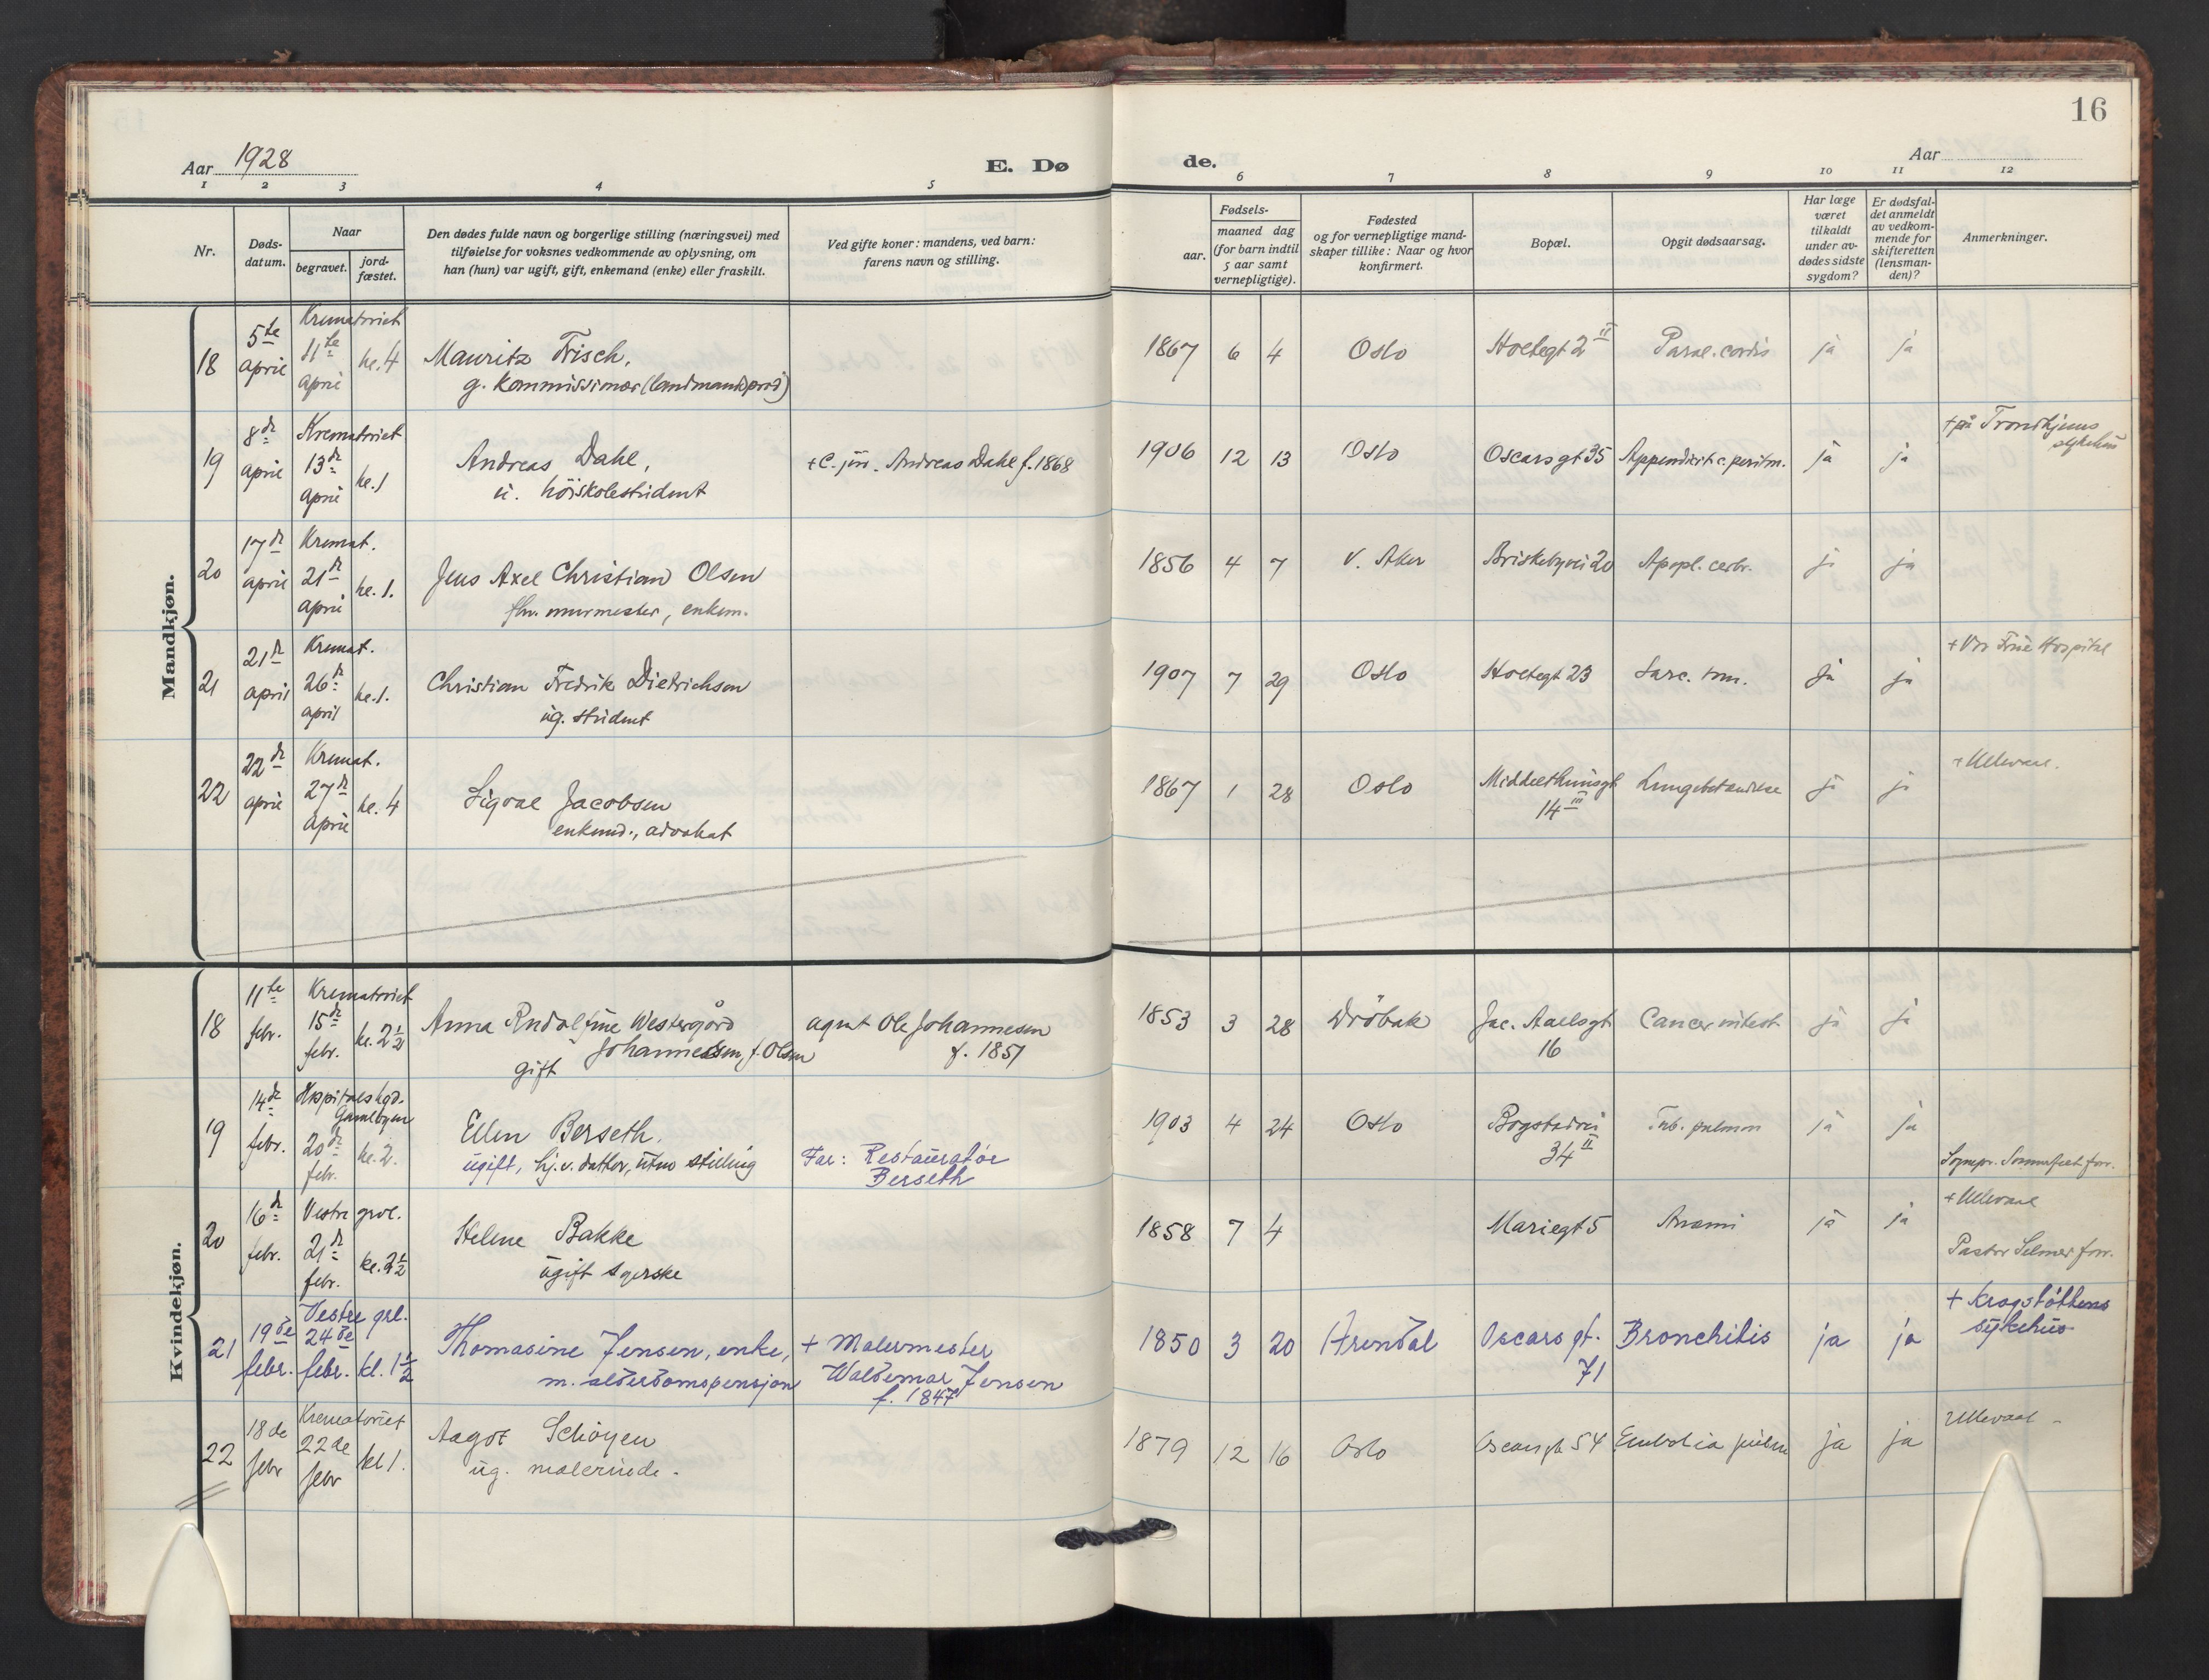 16
Aar 1928
E. Dø
de.
Aar
1 2 3 4 5
6 7 8 9 10 11 12
Nr.
Døds-
datum.
Naar
begravet.
jord-
fæstet.
Den dødes fulde navn og borgerlige stilling (næringsvei) med
tilføielse for voksnes vedkommende av oplysning, om
han (hun) var ugift, gift, enkemand (enke) eller fraskilt.
Ved gifte koner: mandens, ved barn:
farens navn og stilling.
Fødsels-
aar.
maaned dag
(for barn indtil
5 aar samt
vernepligtige).
Fødested
og for vernepligtige mand-
skaper tillike: Naar og hvor
konfirmert.
Bopæl.
Opgit dødsaarsag.
Har læge
været
tilkaldt
under av-
dødes sidste
sygdom?
Er dødsfal-
det anmeldt
av vedkom-
mende for
skifteretten
(lensman-
den)?
Anmerkninger.
Mandkjøn.
18 5te april Krematoriet 11te april kl. 4
Mauritz Frisch,
g. kommissionær (landmandsprod)
1867 6 4 Oslo Holtegt 2 II Paral. cordis ja ja
19 8de april Krematoriet 13de april kl. 1
Andreas Dahl,
u. höiskolestudent
+ C. jur. Andreas Dahl f. 1868
1906 12 13 Oslo Oscarsgt 35 Appendicit c. peritm. ja ja
+ på Trondhjems
sykehus
20 17de april Kremat. 21de april kl. 1.
Jens Axel Christian Olsen
fhv. murmester, enkem.
1856 4 7 V. Aker Briskebyvei 20 Apopl. cerbr. ja ja
21 21de april Kremat. 26de april kl. 1.
Christian Fredrik Dietrichson
ug. student
1907 7 29 Oslo Holtegt 23 Sarc. ja ja
+ Vor Frue Hospital
22 22de april Kremat. 27de april kl. 4
Sigval Jacobsen
enkemd., advokat
1867 1 28 Oslo Middelthunsgt
14 III
Lungebetændelse ja ja
+ Ullevaal.
Kvindekjøn.
18 11te febr. Krematoriet 15de febr. kl. 2½
Anna Rudolfine Westergård
Johannessen, f. Olsen
gift
agent Ole Johannesen
f. 1851
1853 3 28 Dröbak Jac. Aallsgt
16
Cancer intest. ja ja
19 14de febr. Hospitalskgd. Gamlebyen 20de febr. kl. 2.
Ellen Berseth.
ugift, hj.v. datter, uten stilling
Far: Restauratør
Berseth
1903 4 24 Oslo Bogstadvei
34 II
Tub. pulmon ja ja
Sognepr. Sommerfelt forr.
20 16de febr. Vestre grvl. 21de febr. kl. 2½
Helene Bakke
ugift syerske
1858 7 4 Mariegt 5 Anæmi ja ja
+ Ullevaal
Pastor Selmer forr.
21 19de febr. Vestre grl. 24de febr. kl. 1½
Thomasine Jensen, enke,
m. alderdomspensjon
+ Malermester
Waldemar Jensen
f. 1847
1850 3 20 Arendal Oscars gt.
71
Bronchitis ja ja
+ Krogstøttens
sykehus
22 18de febr Krematoriet 22de febr kl 1.
Aagot Schöyen
ug. malerinde.
1879 12 16 Oslo Oscarsgt 54 Embolia pulm ja ja
Ullevaal